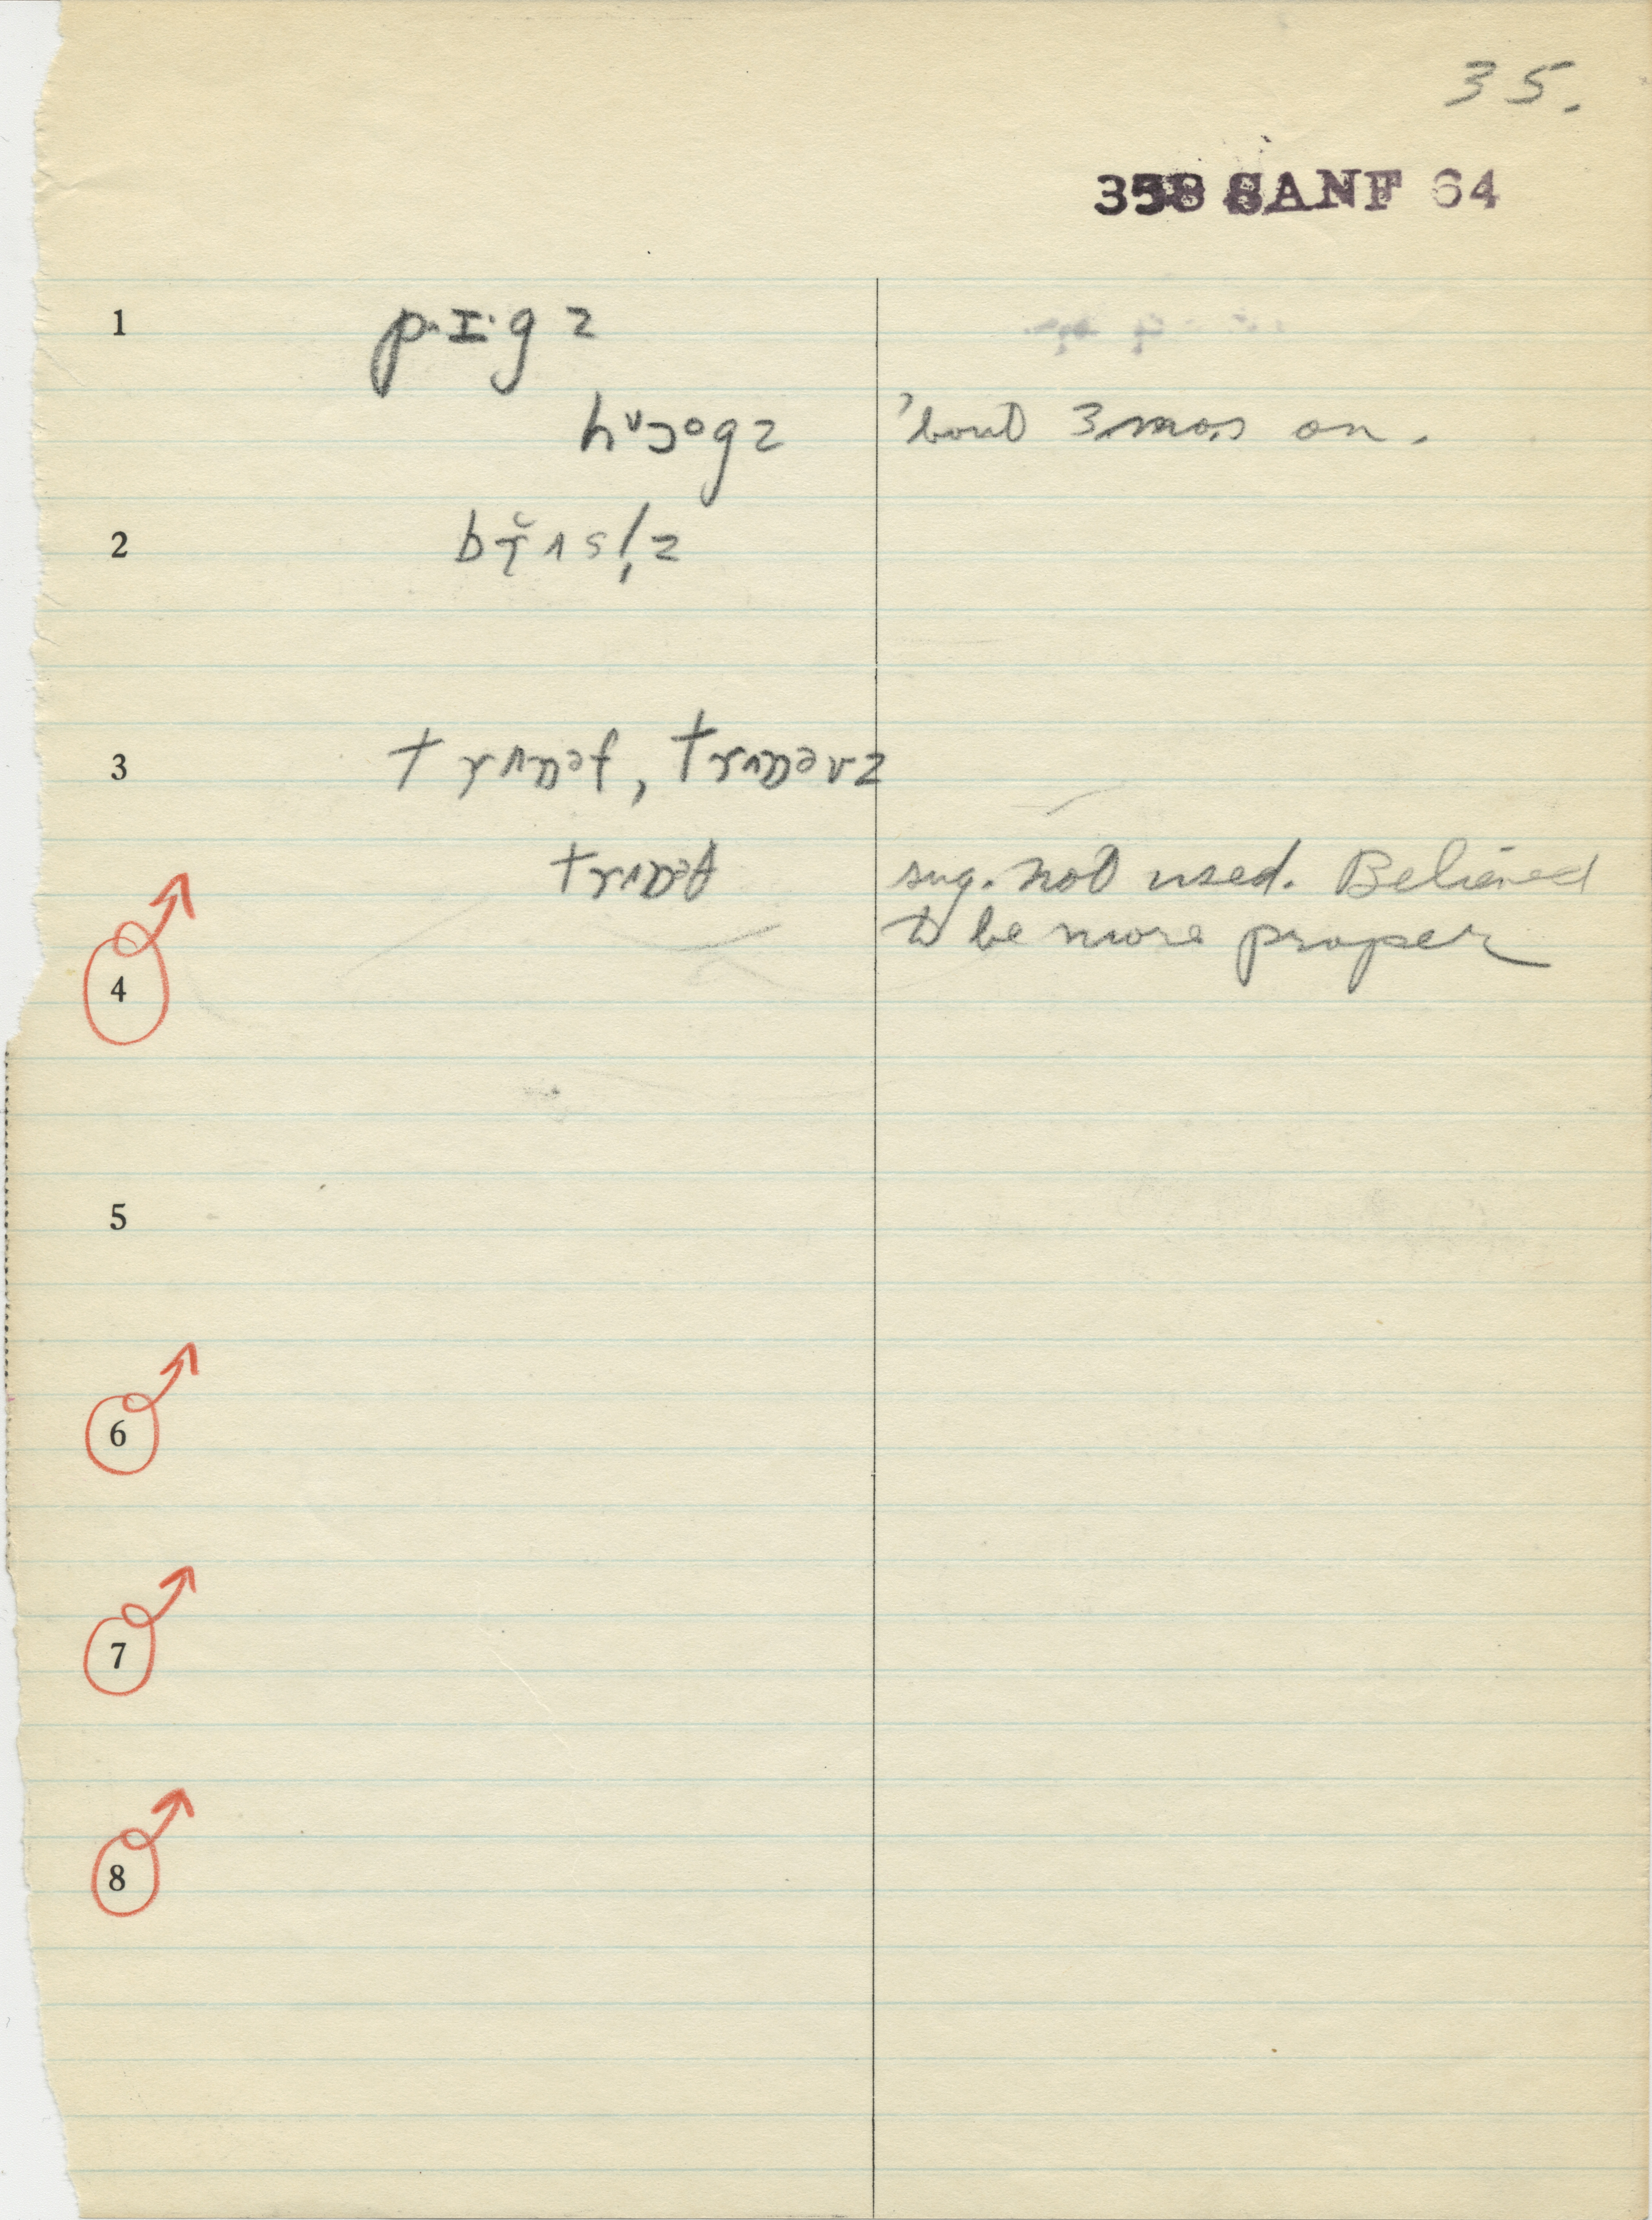 35.
358 SANF 64
1 pɪ·gz
hᶸɔᵒgz 'bout 3 mos on.
2 bɾ̯̆ʌsl̩z
3 trʌɒəf, trʌɒəvz
trʌɒəθ sug. not used. Believed
to be more proper
4
5
6
7
8